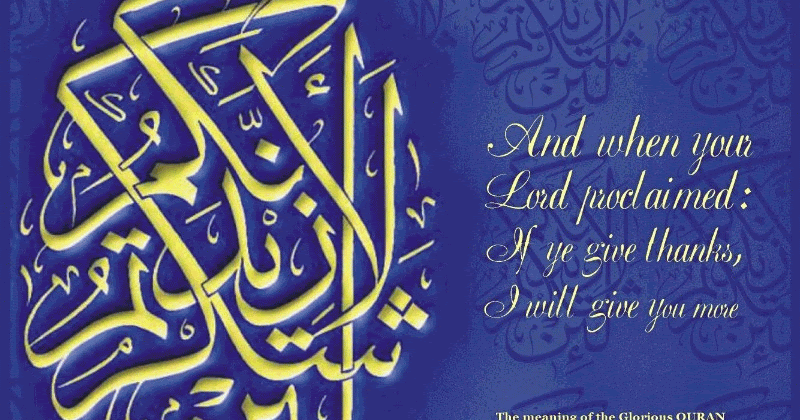 لئن شكرتم لأزيدنكم
And when your
Lord proclaimed:
If ye give thanks,
I will give you more
The meaning of the Glorious QURAN